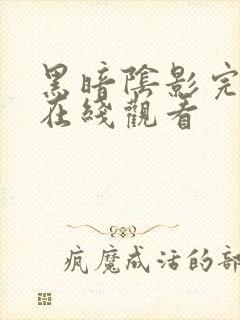 黑暗陰影完
在綫觀看
疯魔成活的部